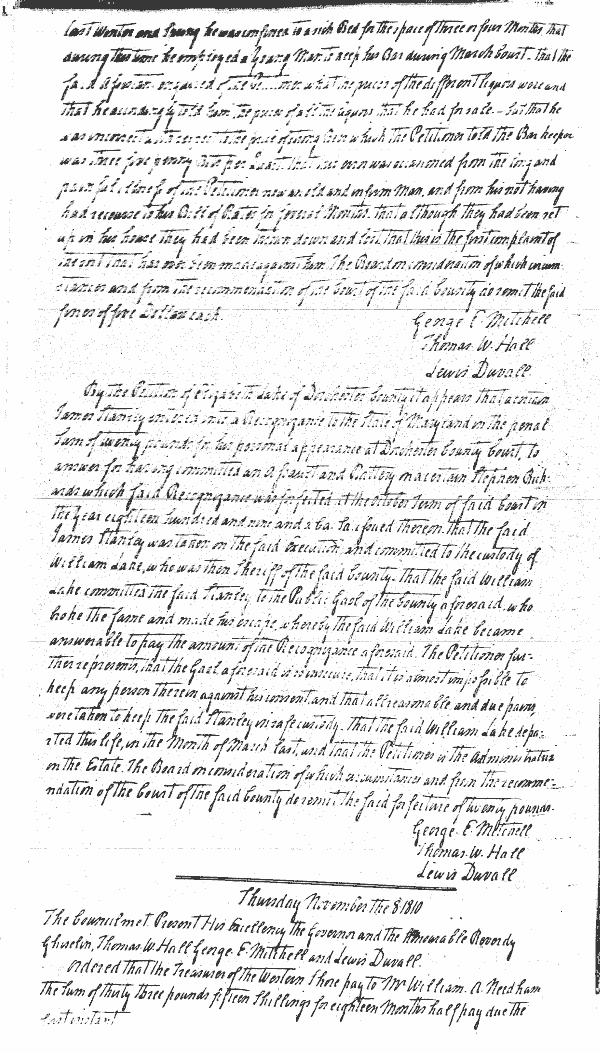 last Winter and Spring he was confined to a sick Bed for the space of three or four Months, that
during this time he employed a Young Man to keep his Bar during March Court - that the
said enquired of the what the prices of the different liquors were and
that he accordingly told him the prices of all the liquors that he had for sale - but that he
was incorrect with respect to the price of which the Petitioner told the Bar keeper
was three five penny per Quart, that this error was occasioned from the long and
painful illness of the Petitioner now an old and infirm Man, and from his not having
had recourse to his Bill of Rates for several Months, that although they had been set
up in his house they had been taken down and lost that this is the first complaint of
the sort that has ever been made against him. The Board on consideration of which circum-
stances and from the recommendation of the Court of the said County do remit the said
fines of five Dollars each.
George E. Mitchell
Thomas W. Hall
Lewis Duvall
By the Petition of Elizabeth Lake of Dorchester County it appears that a certain
James Stanley entered into a Recognizance to the State of Maryland in the penal
Sum of twenty pounds for his personal appearance at Dorchester County Court, to
answer for having committed an Assault and Battery on a certain Stephen Rich-
ards which said Recognizance was forfeited at the October Term of said Court in
the Year eighteen hundred and nine and a Ca. Sa. issued thereon that the said
James Stanley was taken on the said Execution and committed to the custody of
William Lake, who was then Sheriff of the said County. That the said William
Lake committed the said Stanley to the Public Gaol of the County aforesaid, who
broke the same and made his escape, whereby the said William Lake became
answerable to pay the amount of the Recognizance aforesaid. The Petitioner fur-
ther represents, that the Gaol aforesaid is so insecure, that it is almost impossible to
keep any person therein against his consent, and that all reasonable and due pains
were taken to keep the said Stanley in safe custody. That the said William Lake depa-
rted this life, in the Month of March last, and that the Petitioner is the Administratrix
on the Estate. The Board on consideration of which circumstances and from the recomme-
ndation of the Court of the said County do remit the said forfeiture of twenty pounds.
George E. Mitchell
Thomas W. Hall
Lewis Duvall
Thursday November the 8 1810
The Council met. Present His Excellency the Governor and the Honourable Reverdy
Ghiselin, Thomas W. Hall George E. Mitchell and Lewis Duvall.
Ordered that the Treasurer of the Western Shore pay to Mr William A. Needham
the Sum of thirty three pounds fifteen Shillings for eighteen Months half pay due the
instant